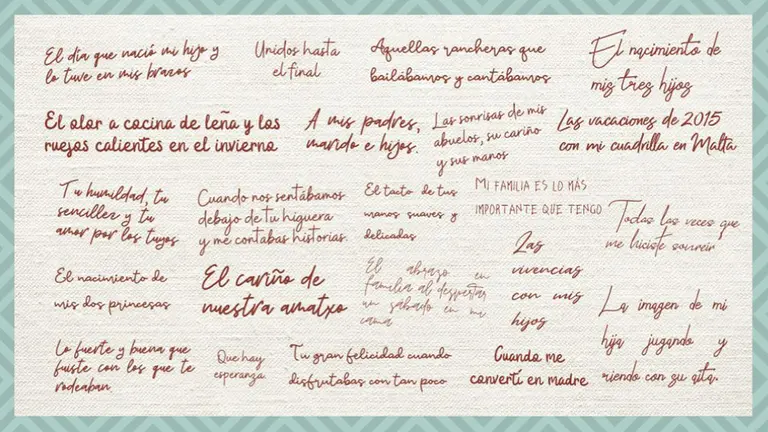 El día que nació mi hijo y
lo tuve en mis brazos
Unidos hasta
el final
Aquellas rancheras que
bailábamos y cantábamos
El nacimiento de
mis tres hijos
El olor a cocina de leña y los
ruejos calientes en el invierno
A mis padres,
marido e hijos.
Las sonrisas de mis
abuelos, su cariño
y sus manos
Las vacaciones de 2015
con mi cuadrilla en Malta
Tu humildad, tu
sencillez y tu
amor por los tuyos
Cuando nos sentábamos
debajo de tu higuera
y me contabas historias.
El tacto de tus
manos suaves y
delicadas
MI FAMILIA ES LO MÁS
IMPORTANTE QUE TENGO
Todas las veces que
me hiciste sonreír
El nacimiento de
mis dos princesas
El cariño de
nuestra amatxo
El abrazo en
familia al despertar
un sábado en mi
cama
Las
vivencias
con mis
hijos
La imagen de mi
hija jugando y
riendo con su aita.
Lo fuerte y buena que
fuiste con los que te
rodeaban
Que hay
esperanza
Tu gran felicidad cuando
disfrutabas con tan poco
Cuando me
convertí en madre